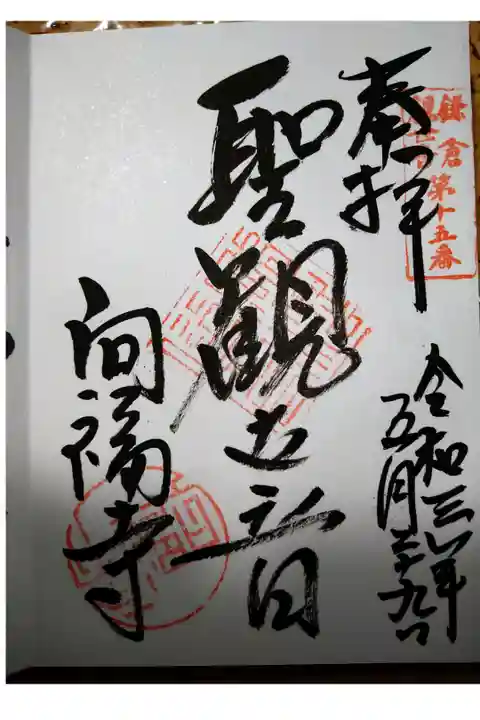 鎌倉第十五番
觀世音
奉拝
令和三年
五月二十九日
聖觀世音
向福寺